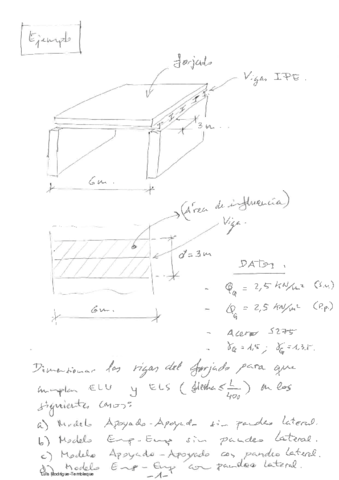 Ejemplo
forjado
Vigas IPE.
3m
6m.
(Área de influencia)
Viga.
d = 3m
6m.
DATOS.
- Q_Q = 2,5 kN/m² (S.U)
- Q_G = 2,5 kN/m² (Pp)
- Acero S275
- γ_Q = 1,5 ; γ_G = 1,35.
Dimensionar las vigas del forjado para que
cumplan ELU y ELS (flecha ≤ L/400) en los
siguientes casos:
a) Modelo Apoyado-Apoyado sin pandeo lateral.
b) Modelo Emp-Emp sin pandeo lateral.
c) Modelo Apoyado-Apoyado con pandeo lateral.
d) Modelo Emp-Emp con pandeo lateral.
-1-